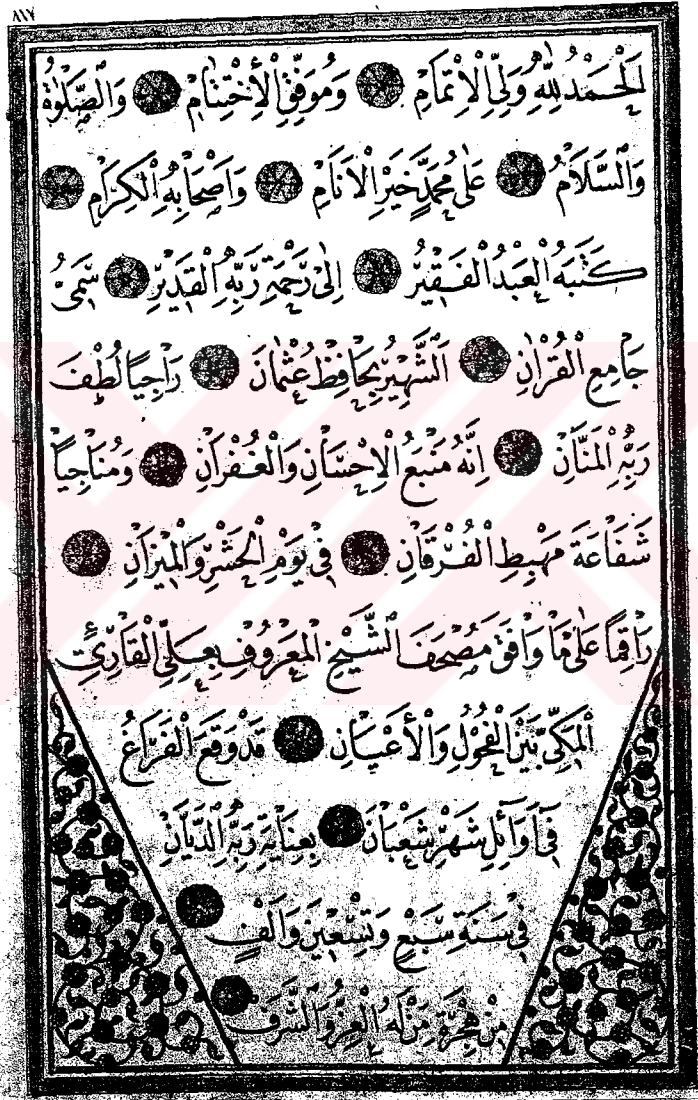 ٨١٧
اَلْحَمْدُ لِلّٰهِ وَلِيِّ الْاِتْمَامِ وَمُوَفِّقِ الْاِخْتِتَامِ وَالصَّلٰوةُ
وَالسَّلَامُ عَلٰى مُحَمَّدٍ خَيْرِ الْاَنَامِ وَاَصْحَابِهِ الْكِرَامِ
كَتَبَهُ الْعَبْدُ الْفَقِيرُ اِلٰى رَحْمَةِ رَبِّهِ الْقَدِيرِ سَمِيُّ
جَامِعِ الْقُرْاٰنِ اَلشَّهِيرُ بِحَافِظْ عُثْمَانَ رَاجِيًا لُطْفَ
رَبِّهِ الْمَنَّانِ اِنَّهُ مَنْبَعُ الْاِحْسَانِ وَالْغُفْرَانِ وَمُنَاجِيًا
شَفَاعَةَ مَهْبِطِ الْفُرْقَانِ فِي يَوْمِ الْحَشْرِ وَالْمِيزَانِ
رَاقِمًا عَلٰى مَا وَافَقَ مُصْحَفَ الشَّيْخِ الْمَعْرُوفِ بِعَلِيِّ الْقَارِئِ
اَلْمَكِّيِّ بَيْنَ الْفُحُولِ وَالْاَعْيَانِ قَدْ وَقَعَ الْفَرَاغُ
فِي اَوَائِلِ شَهْرِ شَعْبَانَ بِعِنَايَةِ رَبِّهِ الدَّيَّانِ
فِي سَنَةِ سَبْعٍ وَتِسْعِينَ وَاَلْفٍ
مِنْ هِجْرَةِ مَنْ لَهُ الْعِزُّ وَالشَّرَفُ